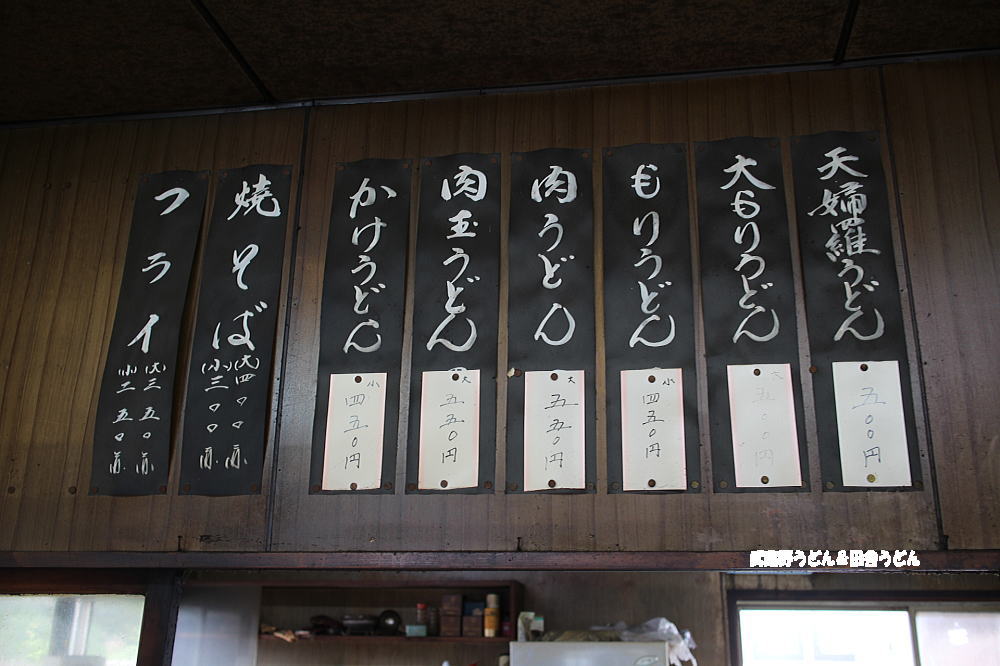 天婦羅うどん
五００円
大もりうどん
大
五００円
もりうどん
小
四五０円
肉うどん
大
五五０円
肉玉うどん
大
五五０円
かけうどん
小
四五０円
焼そば
(大)四００
(小)三００
フライ
(大)三五０
(小)二五０
武蔵野うどん&田舎うどん